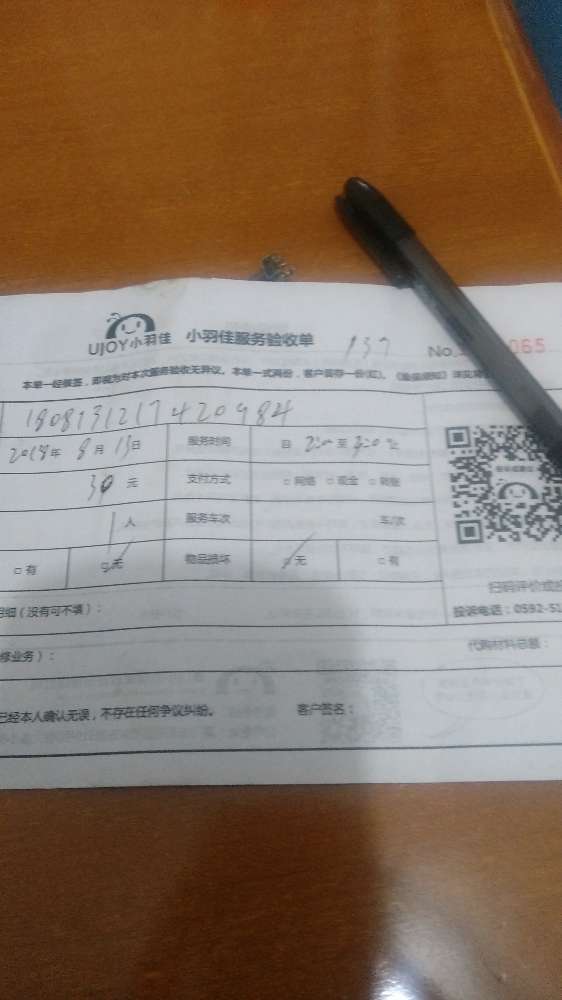 UJOY小羽佳 小羽佳服务验收单 137 No. 065
本单一经核签，即视为对本次服务验收无异议。本单一式两份，客户留存一份(红)。
1808131217420984
2018年8月13日 服务时间 自 至
30元 支付方式 □网络 □现金 □转账
1人 服务车次 车/次
□有 □无 物品损坏 □无 □有
明细（没有可不填）：
扫码评价或投
投诉电话：0592-51
修业务）： 代购材料总额：
已经本人确认无误，不存在任何争议纠纷。 客户签名：